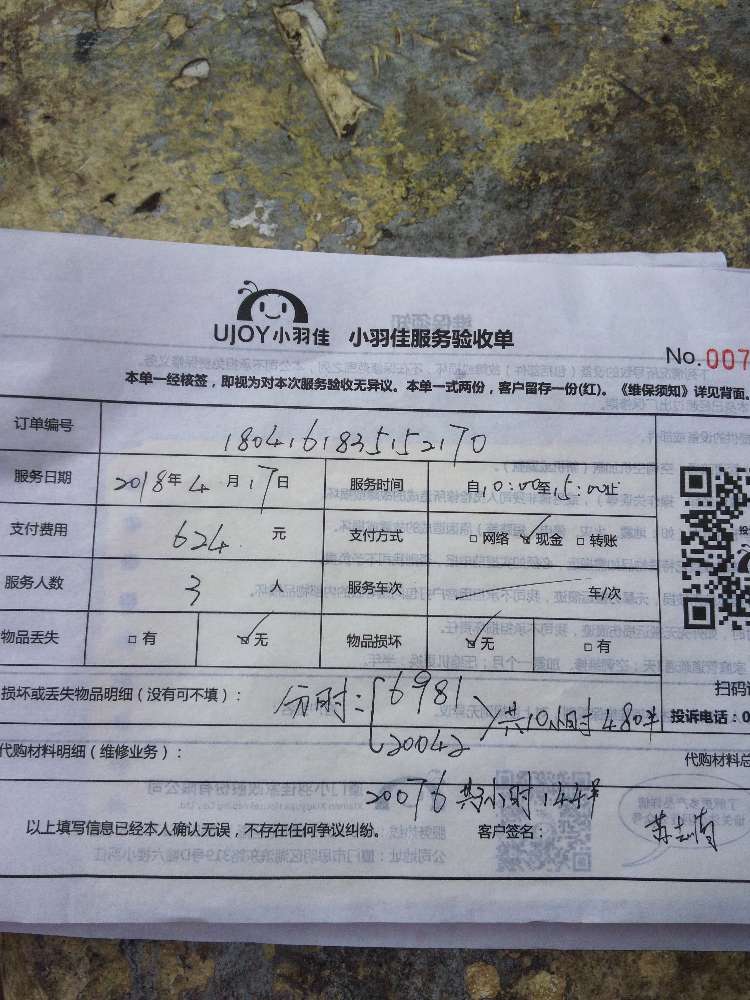 UJOY小羽佳 小羽佳服务验收单
No.007
本单一经核签，即视为对本次服务验收无异议。本单一式两份，客户留存一份(红)。《维保须知》详见背面。
订单编号 1804161835152170
服务日期 2018年4月17日 服务时间 自10:00至15:00止
支付费用 624元 支付方式 □网络 ☑现金 □转账
服务人数 3人 服务车次 车/次
物品丢失 □有 ☑无 物品损坏 ☑无 □有
扫码
损坏或丢失物品明细（没有可不填）： 6981 20042 共10小时480半
投诉电话：0
代购材料明细（维修业务）： 代购材料总
20076 144半
以上填写信息已经本人确认无误，不存在任何争议纠纷。 客户签名：